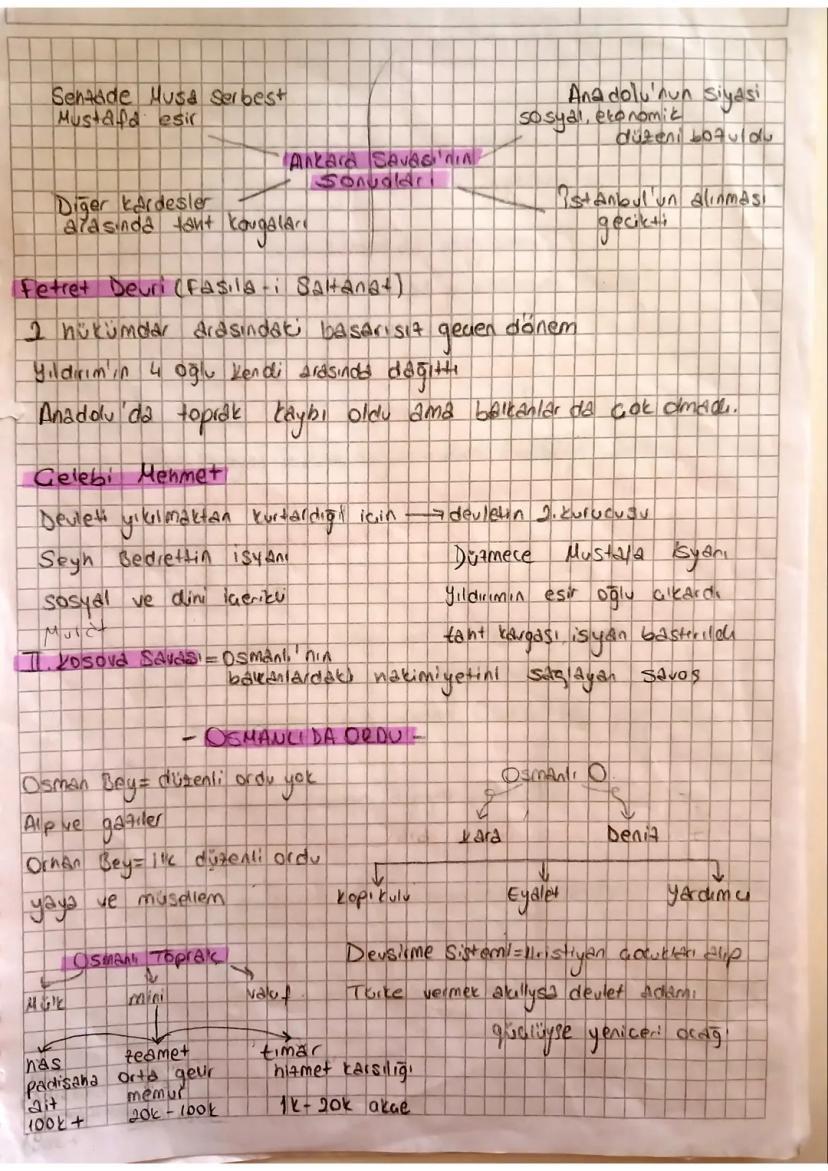 Şehzade Musa serbest
Mustafa esir
Anadolu'nun siyasi
sosyal, ekonomik
düzeni bozuldu
Ankara Savaşı'nın
Sonuçları
Diğer kardeşler
arasında taht kavgaları
İstanbul'un alınması
gecikti
Fetret Devri (Fasıla-i Saltanat)
2 hükümdar arasındaki başarısız geçen dönem
Yıldırım'ın 4 oğlu kendi arasında dağıttı
Anadolu'da toprak kaybı oldu ama balkanlar da çok olmadı.
Çelebi Mehmet
Devleti yıkılmaktan kurtardığı için → devletin 2. kurucusu
Şeyh Bedrettin isyanı
sosyal ve dini içerikli
Murat
Düzmece Mustafa isyanı
Yıldırımın esir oğlu çıkardı
taht kavgası, isyan bastırıldı
II. Kosova Savaşı = Osmanlı'nın
balkanlardaki hakimiyetini sağlayan savaş
- OSMANLIDA ORDU -
Osman Bey = düzenli ordu yok
Alp ve gaziler
Orhan Bey = ilk düzenli ordu
yaya ve müsellem
Osmanlı O.
Kara Deniz
Kapıkulu Eyalet Yardımcı
Osmanlı Toprak
Mülk miri vakıf
has
padişaha
ait
100k +
zeamet
orta gelir
memur
20k - 100k
tımar
hizmet karşılığı
1k - 20k akçe
Devşirme Sistemi = Hristiyan çocukları alıp
Türke vermek akıllıysa devlet adamı
güçlüyse yeniçeri ocağı